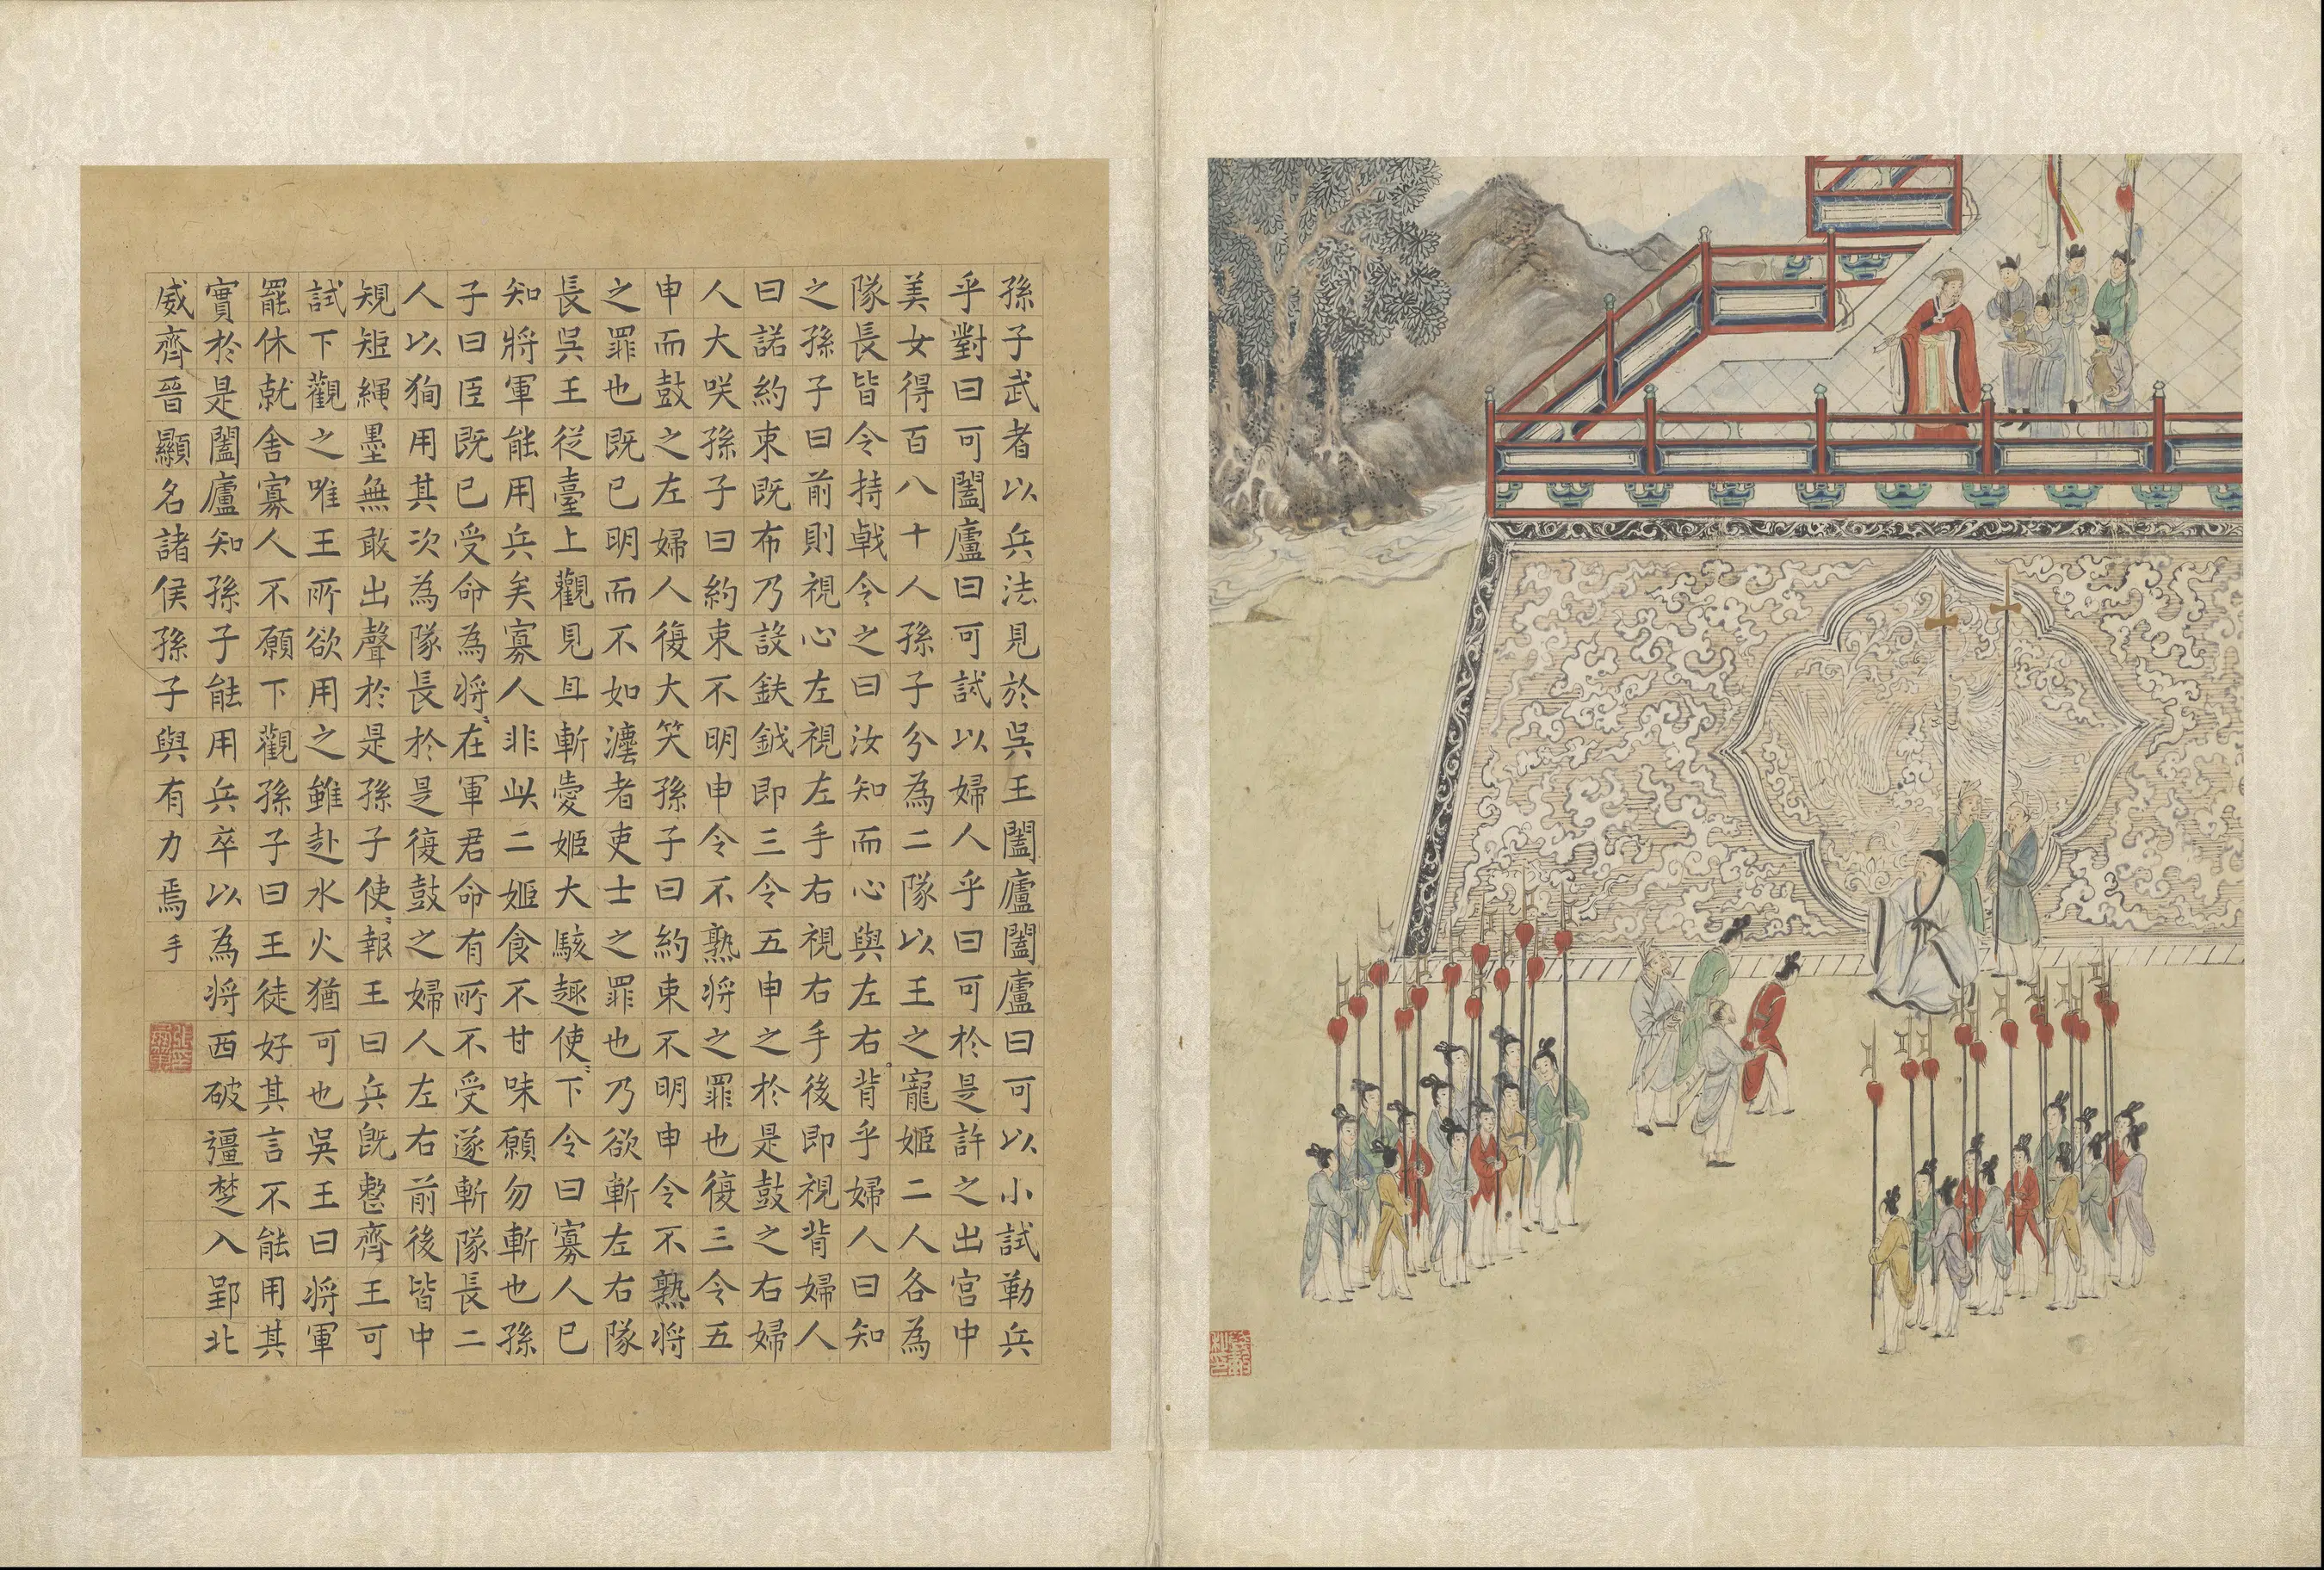 孫子武者以兵法見於吳王闔廬闔廬曰可以小試勒兵
乎對曰可闔廬曰可試以婦人乎曰可於是許之出宮中
美女得百八十人孫子分為二隊以王之寵姬二人各為
隊長皆令持戟令之曰汝知而心與左右背乎婦人曰知
之孫子曰前則視心左視左手右視右手後即視背婦人
曰諾約束既布乃設鈇鉞即三令五申之於是鼓之右婦
人大咲孫子曰約束不明申令不熟將之罪也復三令五
申而鼓之左婦人復大笑孫子曰約束不明申令不熟將
之罪也既已明而不如灋者吏士之罪也乃欲斬左右隊
長吳王從臺上觀見且斬愛姬大駭趣使〻下令曰寡人已
知將軍能用兵矣寡人非此二姬食不甘味願勿斬也孫
子曰臣既已受命為將〻在軍君命有所不受遂斬隊長二
人以狥用其次為隊長於是復鼓之婦人左右前後皆中
規矩繩墨無敢出聲於是孫子使〻報王曰兵既整齊王可
試下觀之唯王所欲用之雖赴水火猶可也吳王曰將軍
罷休就舍寡人不願下觀孫子曰王徒好其言不能用其
實於是闔廬知孫子能用兵卒以為將西破彊楚入郢北
威齊晉顯名諸侯孫子與有力焉手